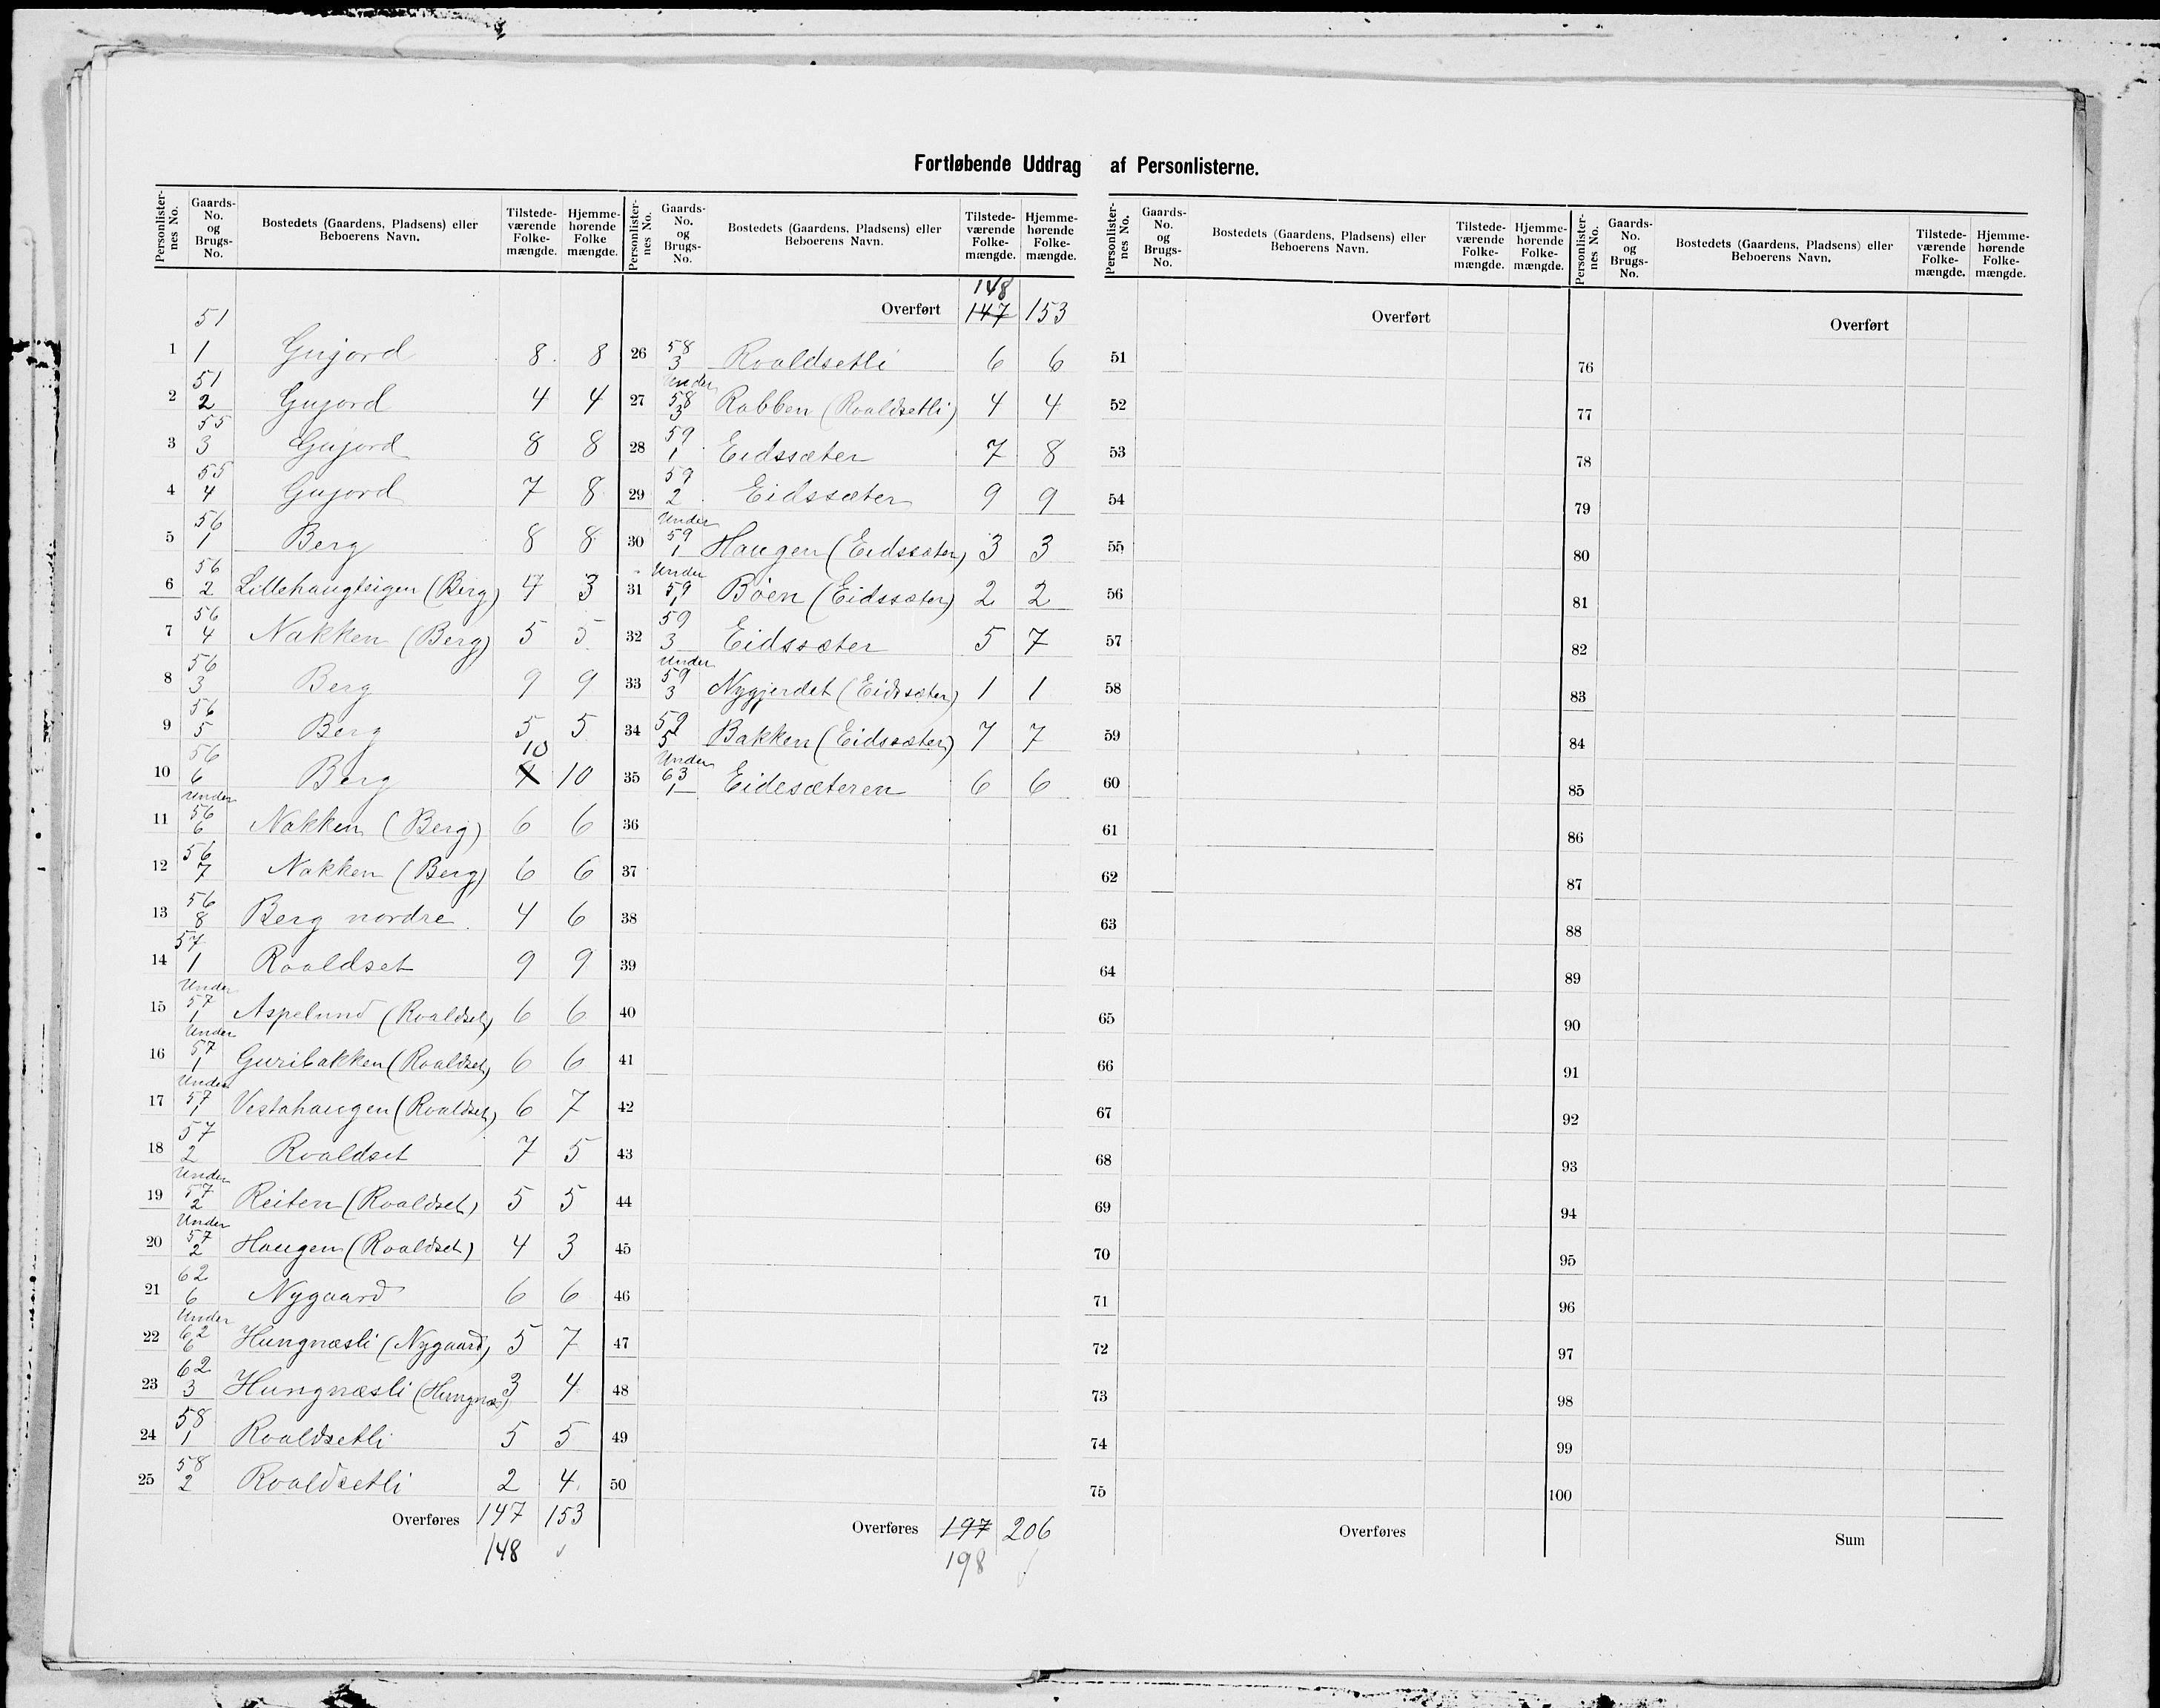 Fortløbende Uddrag af Personlisterne.
Personlister-nes No. Gaards-No. og Brugs-No. Bostedets (Gaardens, Pladsens) eller Beboerens Navn. Tilstede-værende Folke-mængde. Hjemme-hørende Folke mængde.
1 51 1 Gujord 8 8
2 51 2 Gujord 4 4
3 55 3 Gujord 8 8
4 55 4 Gujord 7 8
5 56 1 Berg 8 8
6 56 2 Lillehaugteigen (Berg) 4 3
7 56 4 Nakken (Berg) 5 5
8 56 3 Berg 9 9
9 56 5 Berg 5 5
10 56 6 Berg 10 10
11 Under 56 6 Nakken (Berg) 6 6
12 56 7 Nakken (Berg) 6 6
13 56 8 Berg nordre 4 6
14 57 1 Roaldset 9 9
15 Under 57 1 Aspelund (Roaldset) 6 6
16 Under 57 1 Guribakken (Roaldset) 6 6
17 Under 57 1 Vestahaugen (Roaldset) 6 7
18 57 2 Roaldset 7 5
19 Under 57 2 Reiten (Roaldset) 5 5
20 Under 57 2 Haugen (Roaldset) 4 3
21 62 6 Nygaard 6 6
22 Under 62 6 Hungnæsli (Nygaard) 5 7
23 62 3 Hungnæsli (Hungnæs) 3 4
24 58 1 Roaldsetli 5 5
25 58 2 Roaldsetli 2 4
Overføres 147 153
148
Personlister-nes No. Gaards-No. og Brugs-No. Bostedets (Gaardens, Pladsens) eller Beboerens Navn. Tilstede-værende Folke-mængde. Hjemme-hørende Folke-mængde.
148
Overført 147 153
26 58 3 Roaldsetli 6 6
27 Under 58 3 Rabben (Roaldsetli) 4 4
28 59 1 Eidssæter 7 8
29 59 2 Eidssæter 9 9
30 Under 59 1 Haugen (Eidssæter) 3 3
31 Under 59 1 Böen (Eidssæter) 2 2
32 59 3 Eidssæter 5 7
33 Under 59 3 Nygjerdet (Eidssæter) 1 1
34 59 5 Bakken (Eidssæter) 7 7
35 Under 63 1 Eidesæteren 6 6
36
37
38
39
40
41
42
43
44
45
46
47
48
49
50
Overføres 197 206
198
Personlister-nes No. Gaards-No. og Brugs-No. Bostedets (Gaardens, Pladsens) eller Beboerens Navn. Tilstede-værende Folke-mængde. Hjemme-hørende Folke-mængde.
Overført
51
52
53
54
55
56
57
58
59
60
61
62
63
64
65
66
67
68
69
70
71
72
73
74
75
Overføres
Personlister-nes No. Gaards-No. og Brugs-No. Bostedets (Gaardens, Pladsens) eller Beboerens Navn. Tilstede-værende Folke-mængde. Hjemme-hørende Folke-mængde.
Overført
76
77
78
79
80
81
82
83
84
85
86
87
88
89
90
91
92
93
94
95
96
97
98
99
100
Sum